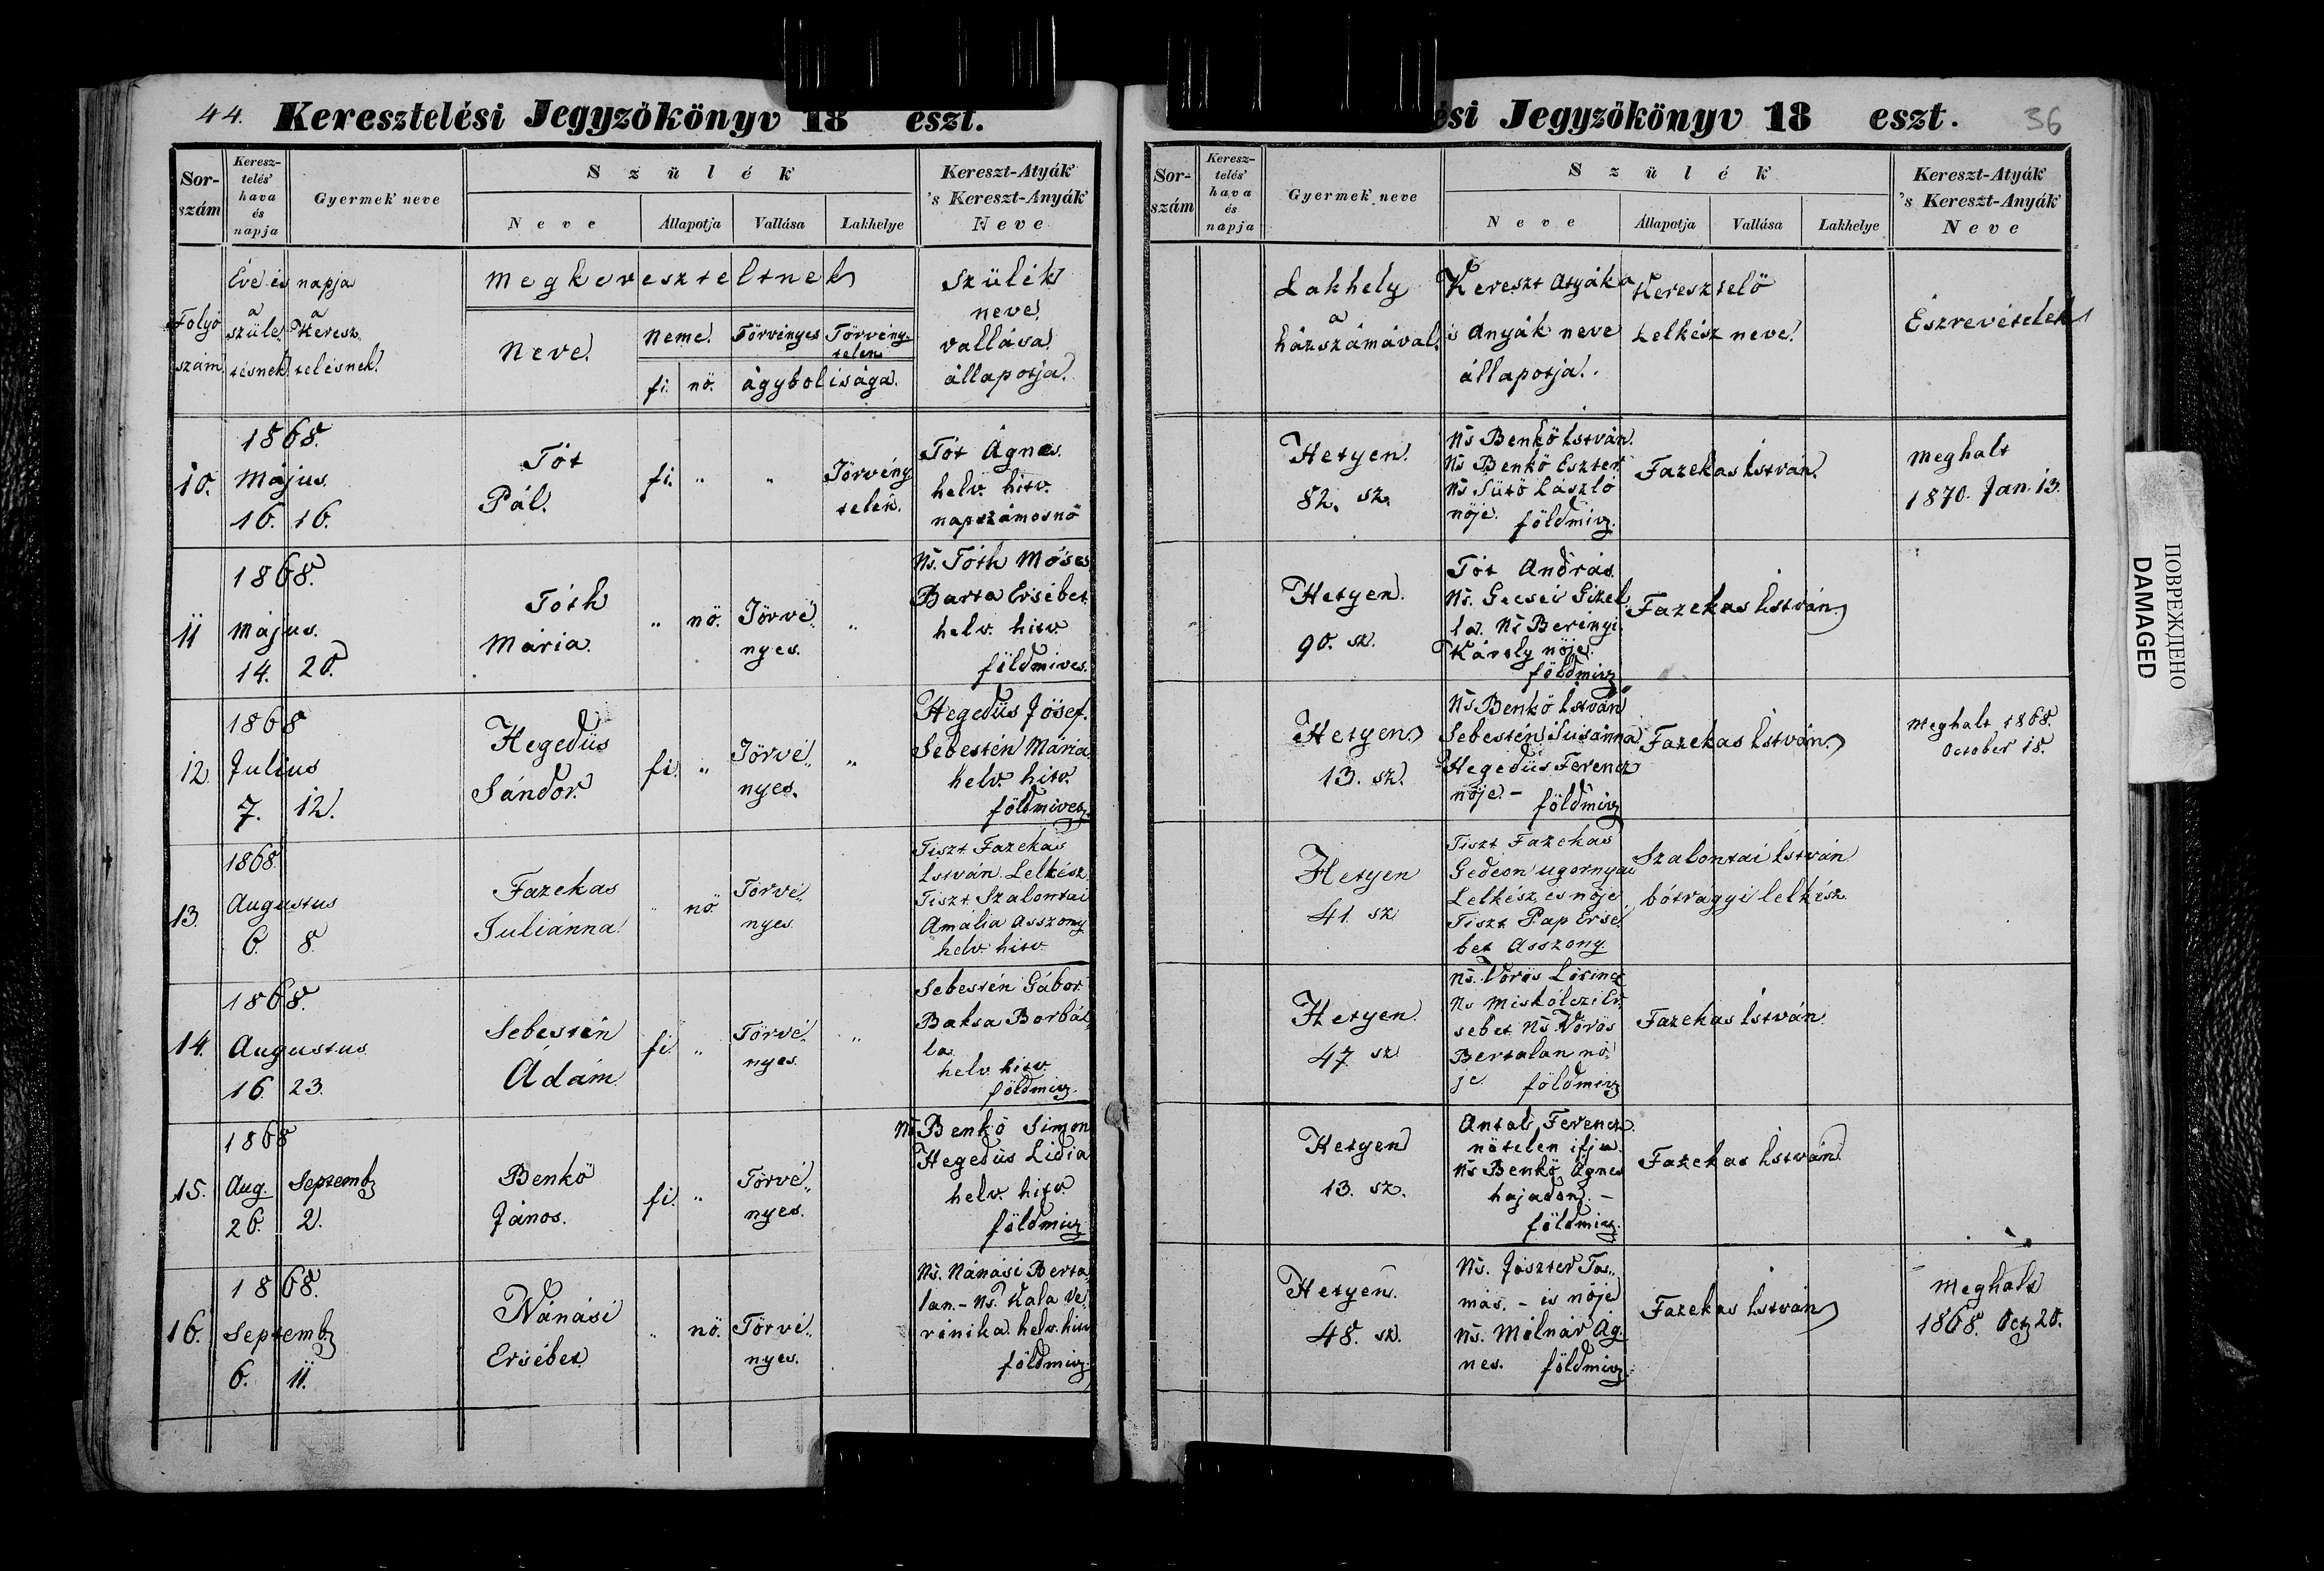 44.
Keresztelési Jegyzökönyv 18 eszt.
Sor-
szám
Keresz-
telés'
hava
és
napja
Gyermek neve
Szülék
Neve
Állapotja
Vallása
Lakhelye
Kereszt-Atyák
's Kereszt-Anyák
Neve
Folyó
szám
Éve és napja
a
szüle
tésnek
a
Keresz
telésnek.
Megkereszteltnek
Neve.
Neme.
fi.
nö.
Törvényes
Törvény-
telen
ágybolisága.
Szülék
neve
vallása
állapotja.
10.
1868.
Május.
16. 16.
Tót
Pál.
fi.
"
"
Törvény
telen.
Tót Ágnes.
helv. hitv.
napszámosnö
11
1868.
Május.
14. 20.
Tóth
Mária.
"
nö.
Törvé„
nyes.
"
Ns. Tóth Móses
Barta Ersébet.
helv. hitv.
földmives.
12.
1868
Julius
7. 12.
Hegedüs
Sándor.
fi.
"
Törvé„
nyes.
"
Hegedüs Jósef.
Sebestén Mária
helv. hitv.
földmives.
13.
1868
Augustus
6. 8.
Fazekas
Juliánna.
"
nö.
Törvé„
nyes
Tiszt. Fazekas
István. Lelkész
Tiszt. Szalontai
Amália Asszony
helv. hitv.
14.
1868.
Augustus
16. 23.
Sebestén
Ádám
fi.
"
Törvé„
nyes.
"
Sebestén Gábor.
Baksa Borbál
la.
helv. hitv.
földmivz.
15.
1868
Aug. Septemb.
26. 2.
Benkö
János.
fi.
"
Törvé„
nyes.
Ns. Benkö Simon
Hegedüs Lidia
helv. hitv.
földmivz
16.
1868.
Septemb.
6. 11.
Nánási
Ersébet.
"
nö.
Törvé„
nyes.
Ns. Nánási Berta„
lan. – Ns. Kala Ve„
rónika. helv. hitv
földmivz.
ési Jegyzökönyv 18 eszt.
36
Sor-
szám
Keresz-
telés'
hava
és
napja
Gyermek neve
Szülék
Neve
Állapotja
Vallása
Lakhelye
Kereszt-Atyák
's Kereszt-Anyák
Neve
Lakhely
a
házszámával.
Kereszt Atyák
és Anyák neve
állapotja.
Keresztelö
Lelkész neve.
Észrevételek
Hetyen.
82. sz.
Ns Benkö István.
Ns Benkö Eszter
Ns Sütö László
nöje. földmivz.
Fazekas István.
Meghalt
1870. Jan. 13.
Hetyen.
90. sz.
Tót András.
Ns. Gecsei Gizel
la. Ns Berényi
Károly nöje.
földmivz
Fazekas István
Hetyen
13. sz.
Ns Benkö István
Sebestén Susánna
Hegedüs Ferencz
nöje. – földmivz
Fazekas István.
Meghalt 1868.
October 18.
Hetyen
41. sz
Tiszt. Fazekas
Gedeon ugornyai
Lelkész, es nöje
Tiszt. Pap Ersé„
bet Asszony.
Szalontai István
bótrágyi lelkész.
Hetyen
47 sz
Ns. Vörös Lörincz
Ns Miskólczi Er„
sebet Ns Vörös
Bertalan nö„
je. földmivz
Fazekas István
Hetyen
13. sz.
Antal Ferencz
nötelen ifju.
Ns Benkö Ágnes
hajadon. –
földmivz.
Fazekas István
Hetyen.
48. sz.
Ns. Jószter Ta„
más. – és nöje
Ns. Mólnár Ág„
nes. földmivz.
Fazekas István
Meghalt
1868. Oct. 20.
ПОВРЕЖДЕНО
DAMAGED